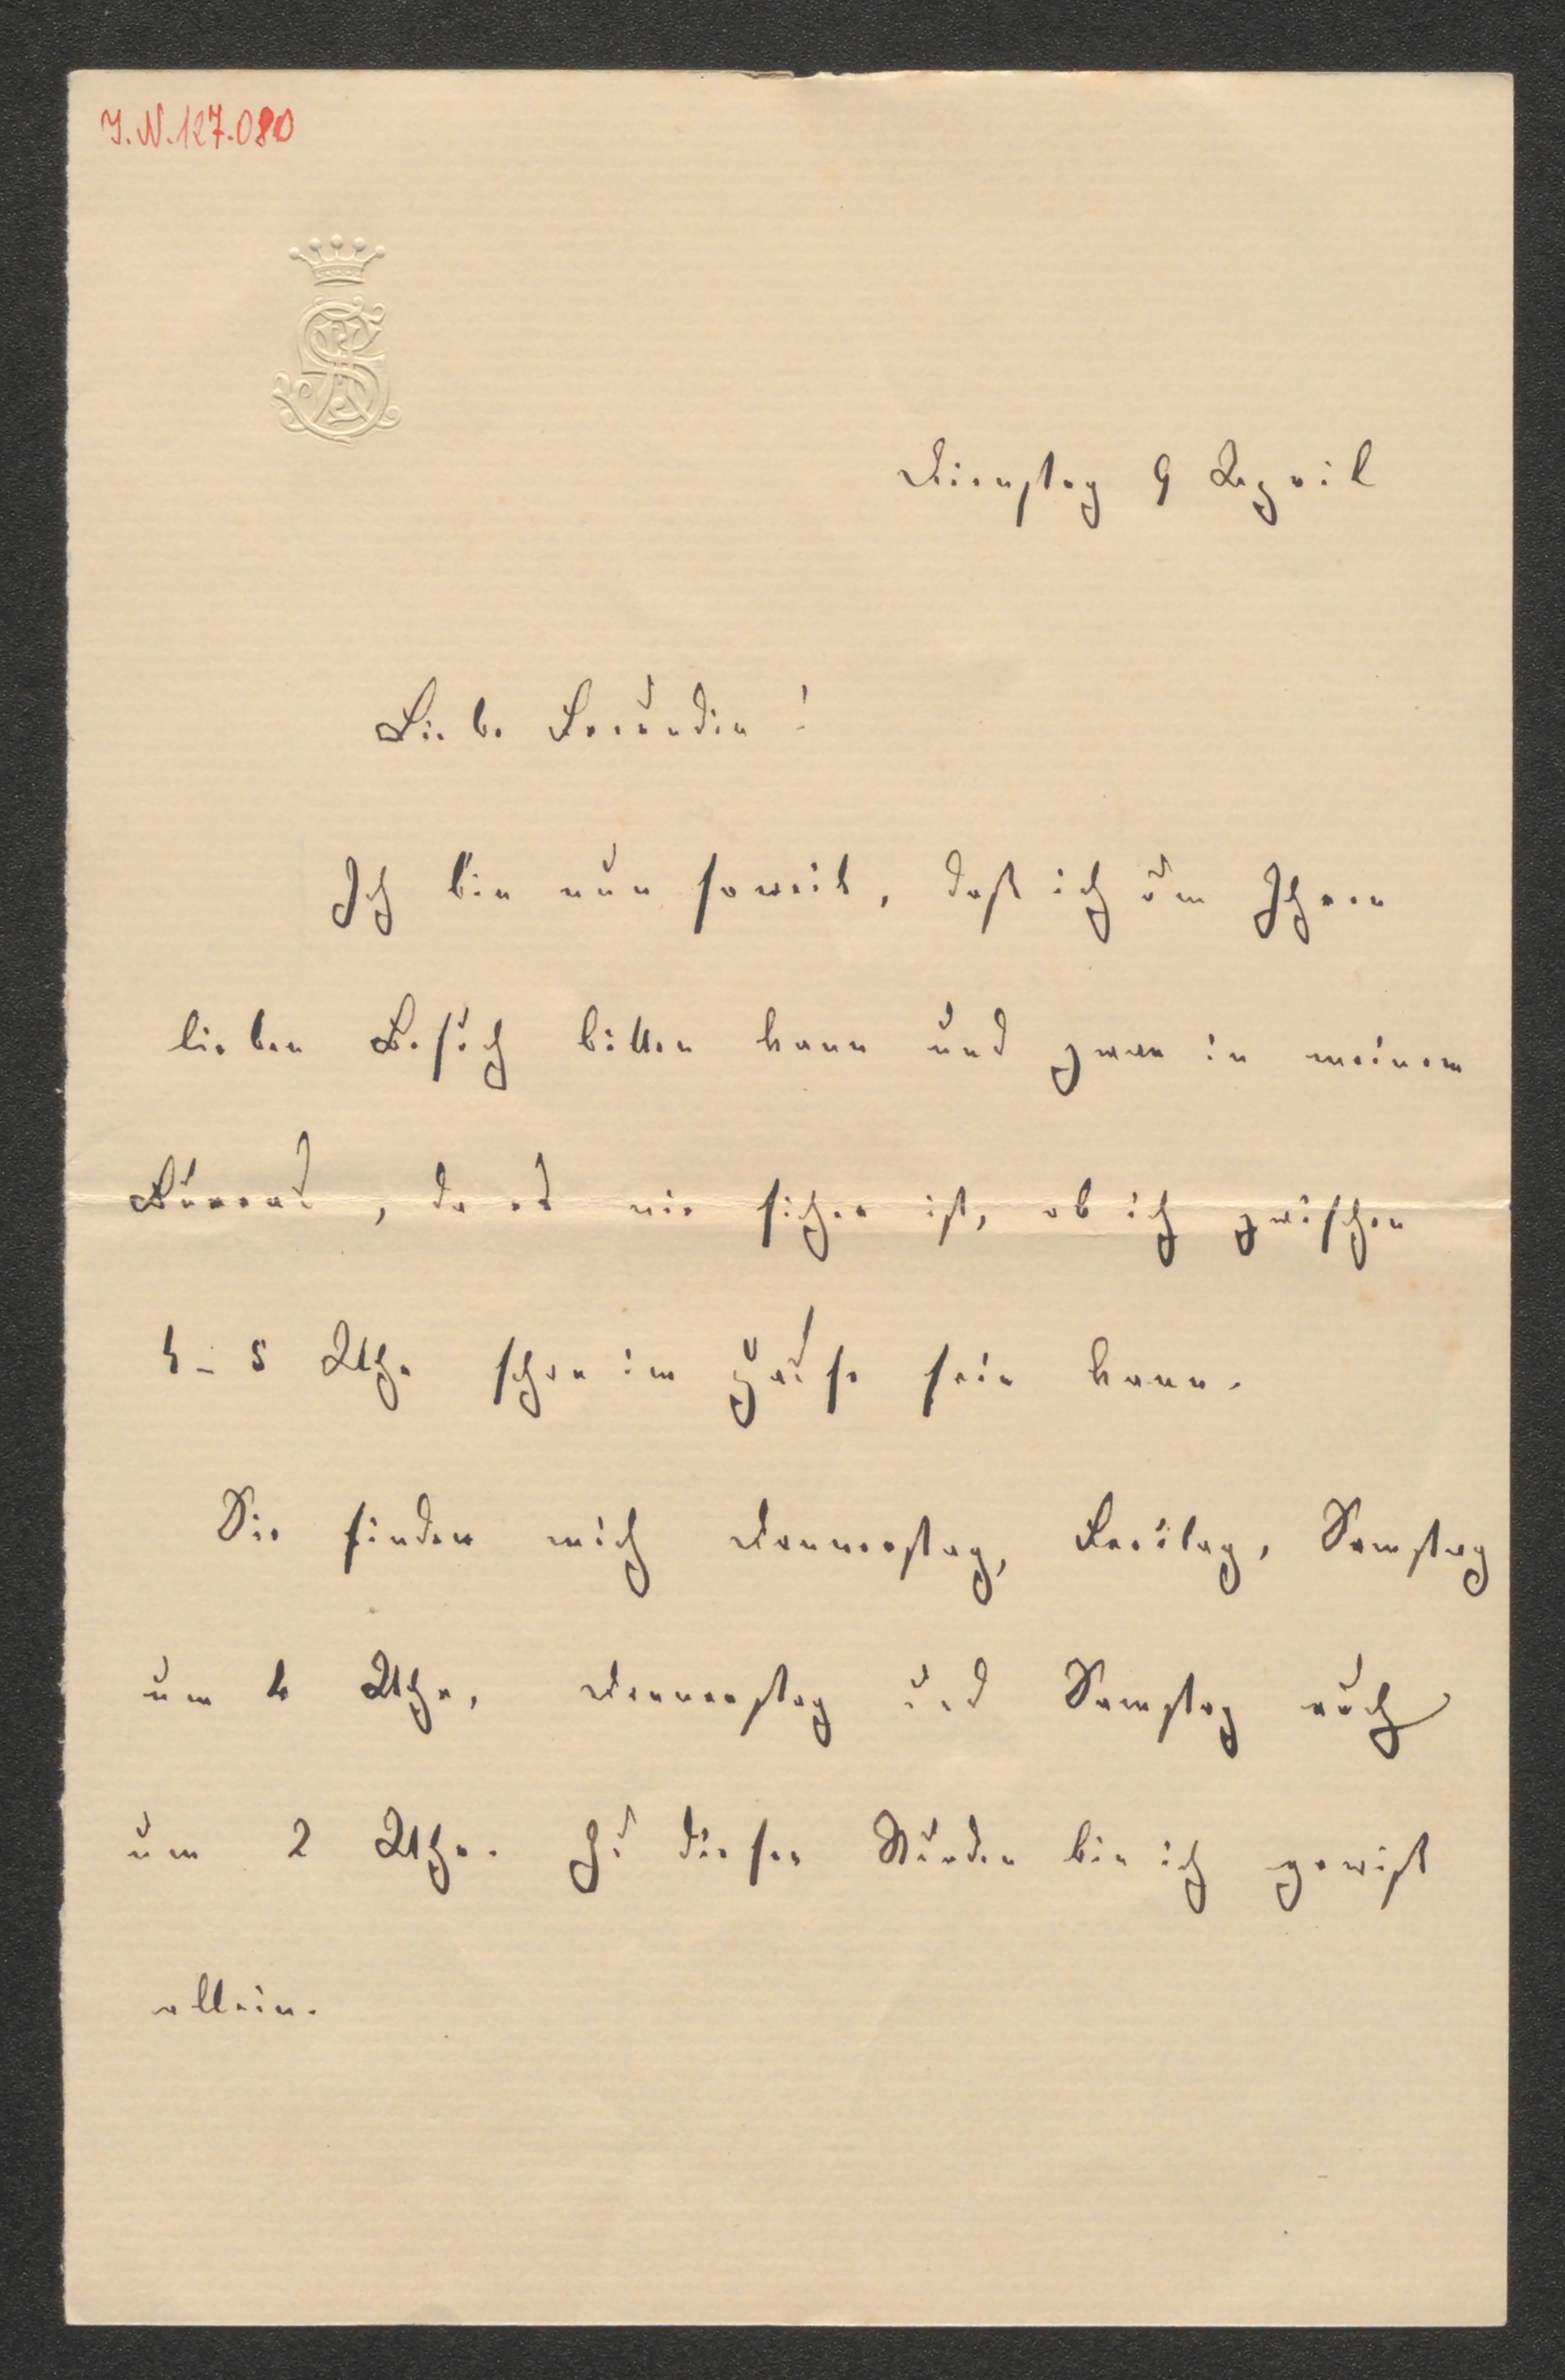 I.N.127.080
Dienstag 9 April
Liebe Freundin!
Ich bin nun soweit, daß ich um Ihren
lieben Besuch bitten kann und zwar in meinem
Bureau, da es nie sicher ist, ob ich zwischen
4-5 Uhr schon im Hause sein kann.
Sie finden mich Donnerstag, Freitag, Samstag
um Uhr, Donnerstag und Samstag auch
um 2 Uhr. Zu diesen Stunden bin ich gewiß
allein.